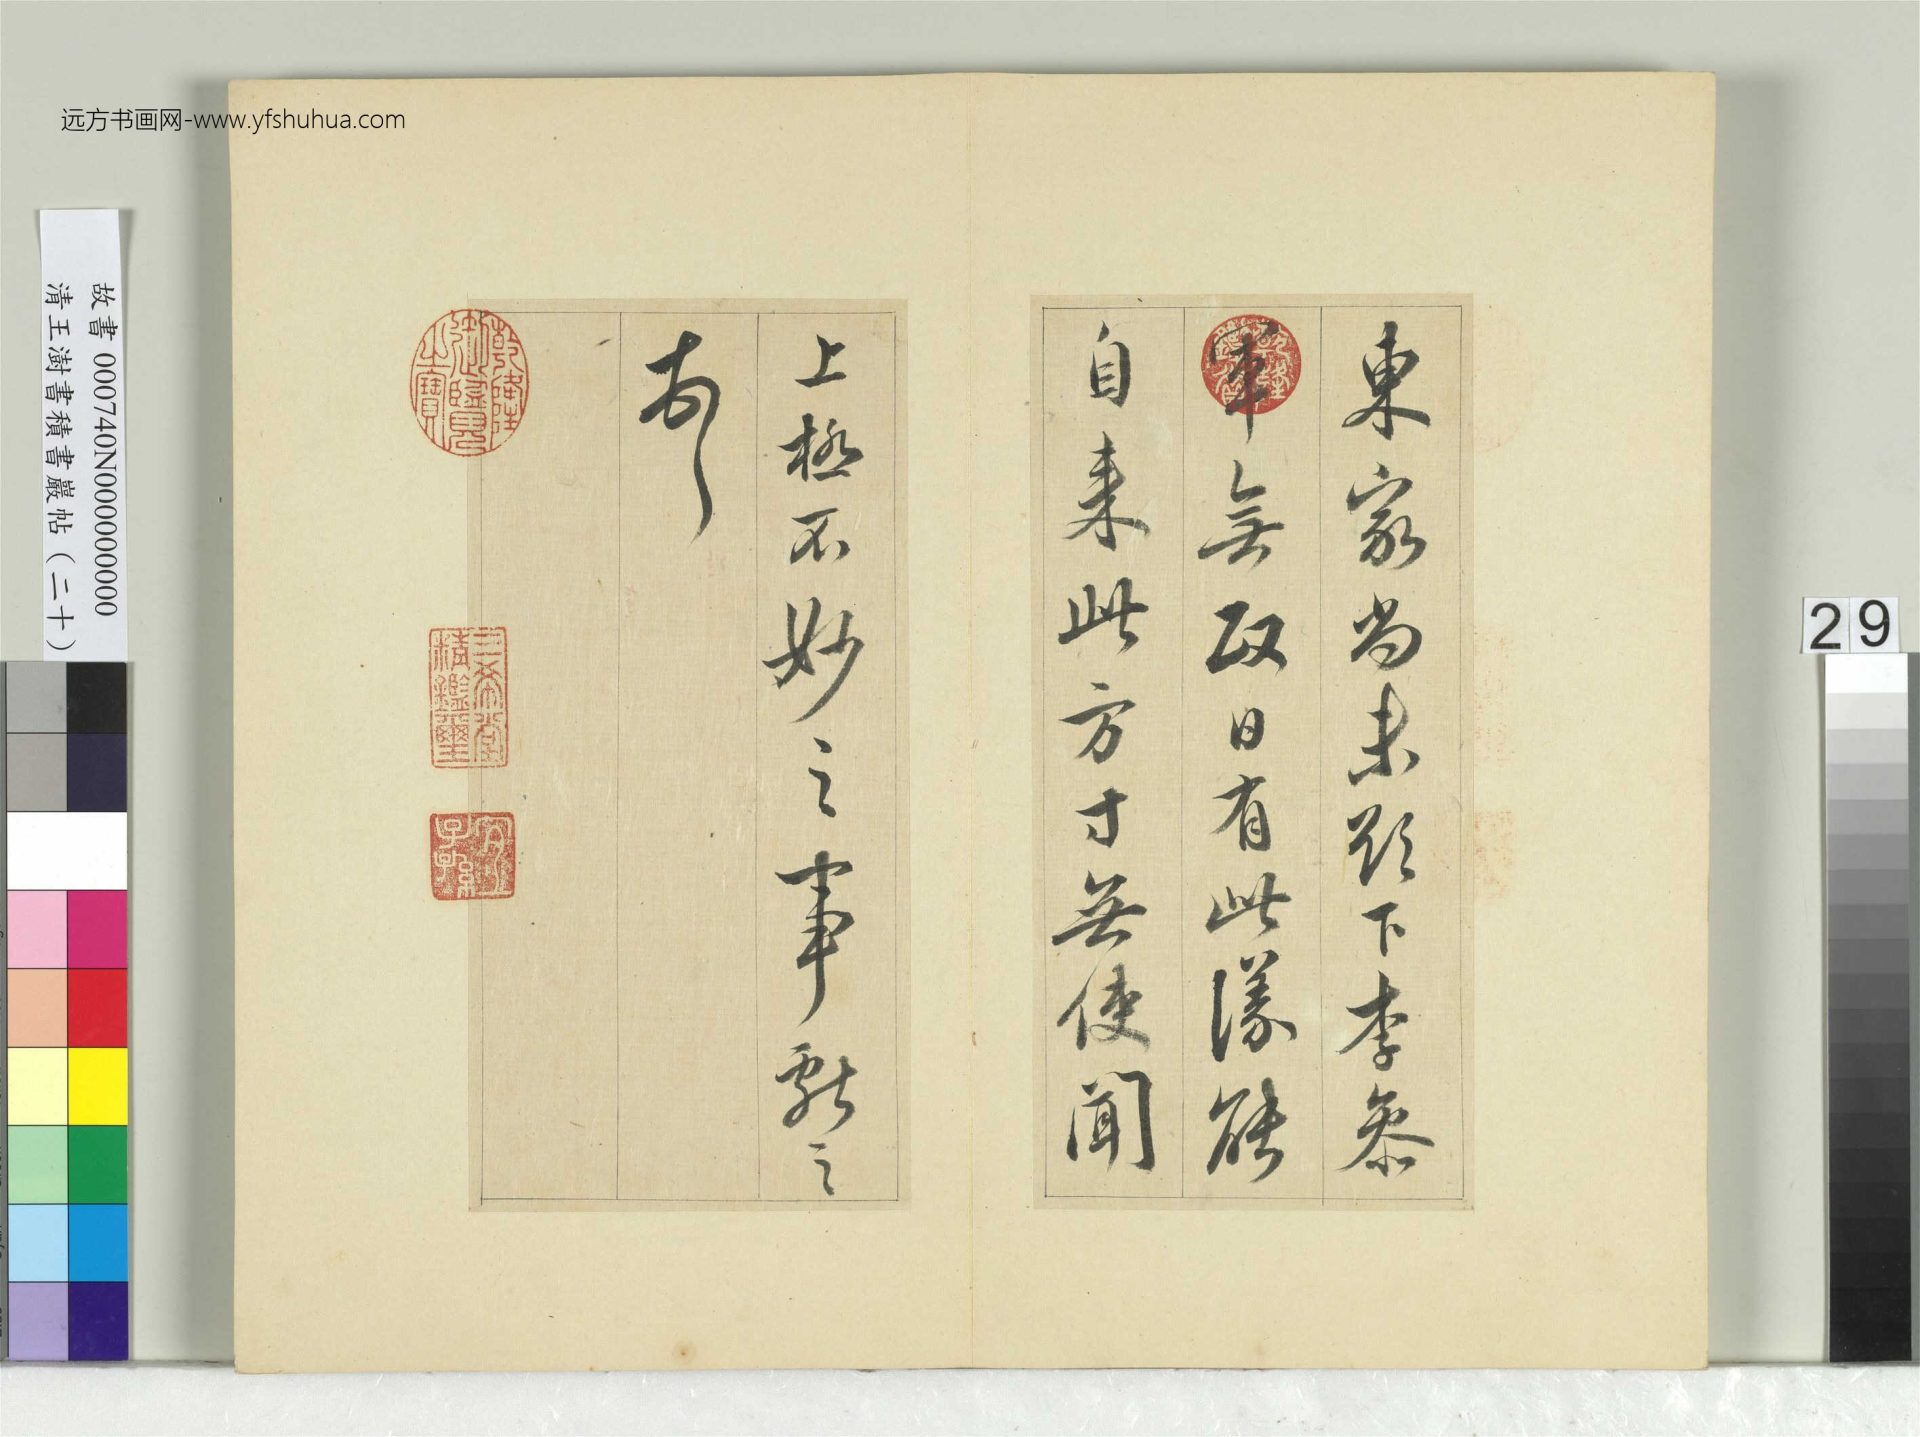 远方书画网-www.yfshuhua.com
故書 000740N000000000
清王澍書積書巖帖（二十）
29
東家尚未欵下李參
軍無政日有此議能
自来此方寸無使聞
上極不妙之事獻之
乾隆御覽之寶
三希堂精鑑璽
宜子孫